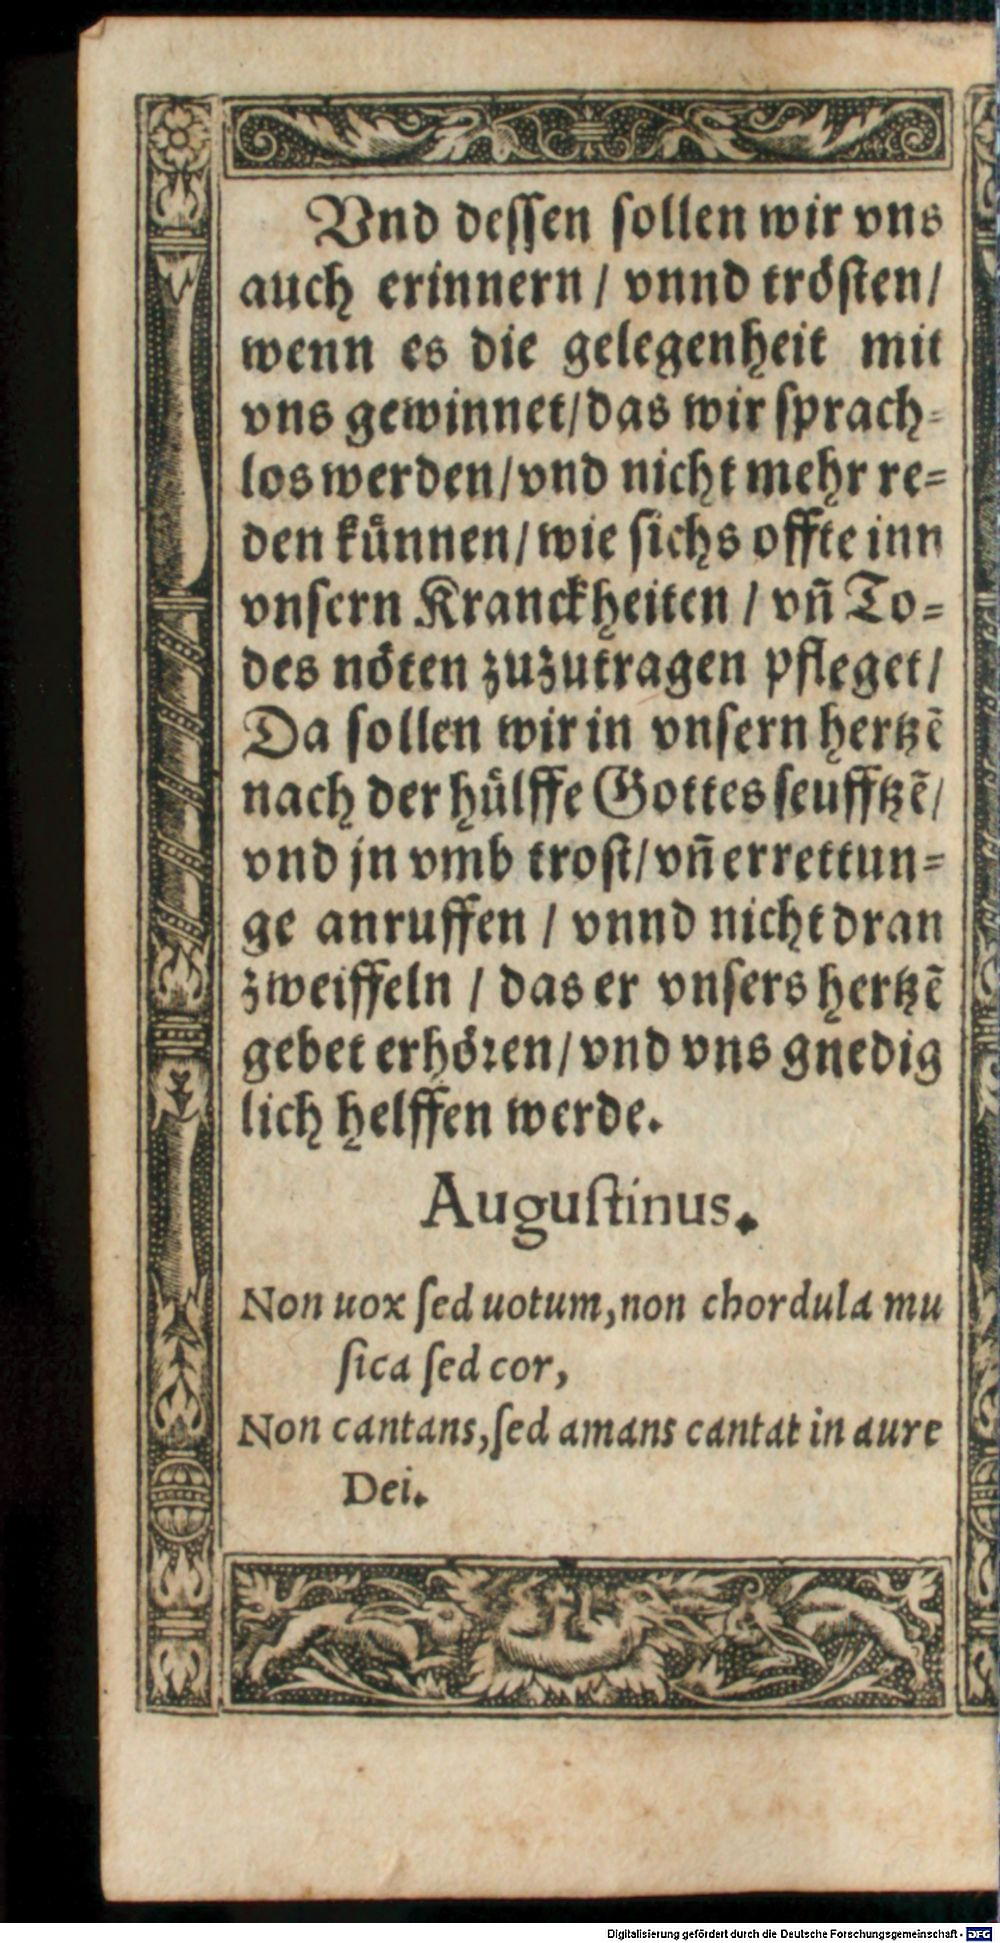 Vnd deſſen ſollen wir vns
auch erinnern / vnnd tröſten /
wenn es die gelegenheit mit
vns gewinnet / das wir ſprach-
los werden / vnd nicht mehr re-
den künnen / wie ſichs offte inn
vnſern Kranckheiten / vñ To-
des nöten zuzutragen pfleget /
Da ſollen wir in vnſern hertzē
nach der hülffe Gottes ſeufftzē /
vnd jn vmb troſt / vñ errettun-
ge anruffen / vnnd nicht dran
zweiffeln / das er vnſers hertzē
gebet erhören / vnd vns gnedig
lich helffen werde.
Auguſtinus.
Non uox ſed uotum, non chordula mu
ſica ſed cor,
Non cantans, ſed amans cantat in aure
Dei.
Digitalisierung gefördert durch die Deutsche Forschungsgemeinschaft - DFG